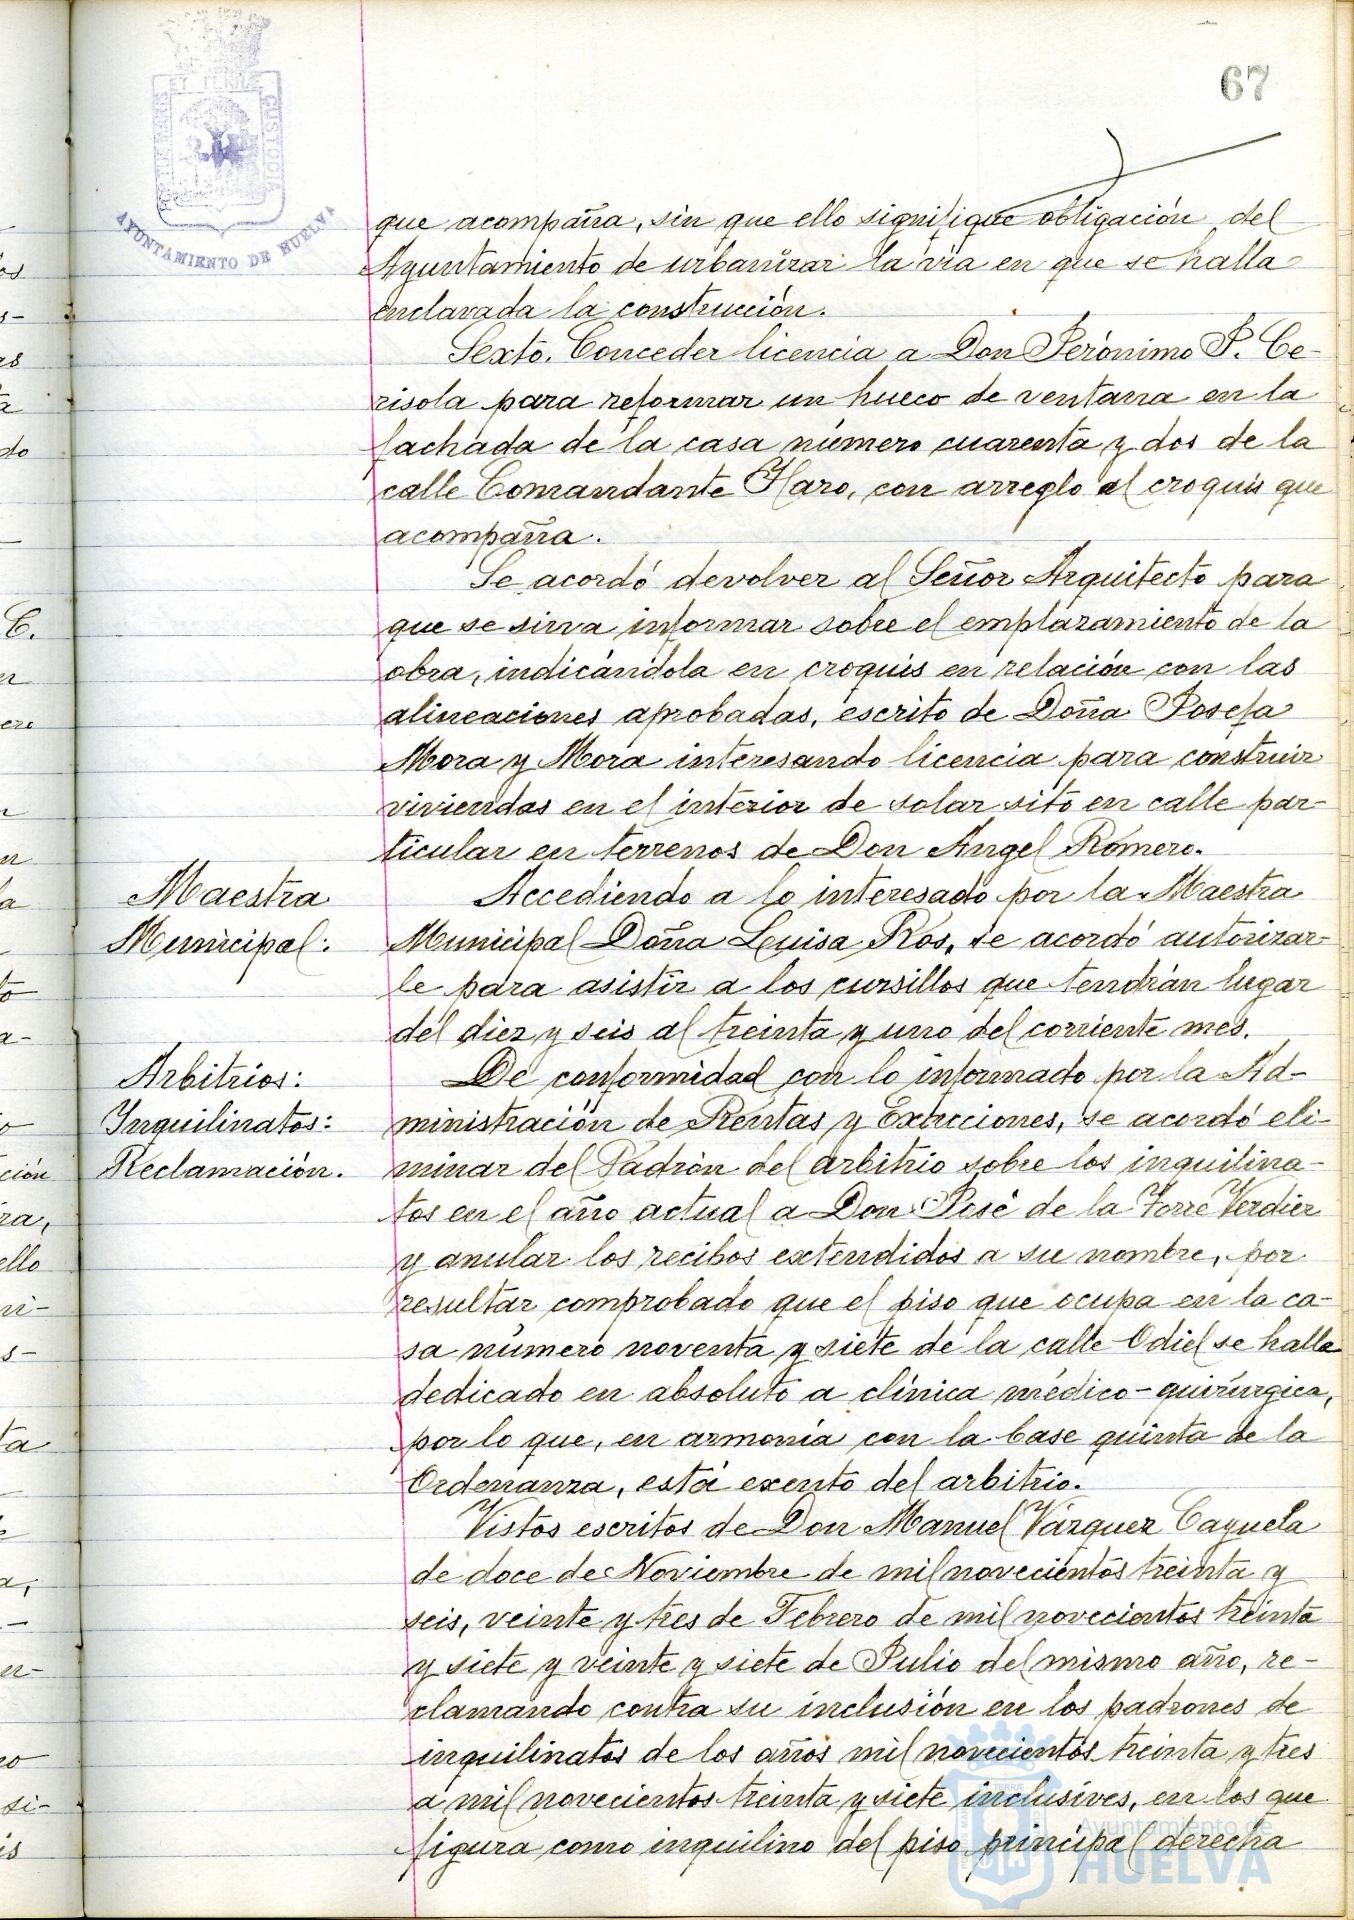 67
PORTUS MARIS ET TERRÆ CUSTODIA
AYUNTAMIENTO DE HUELVA
que acompaña, sin que ello signifique obligación del
Ayuntamiento de urbanizar la vía en que se halla
enclavada la construcción.
Sexto. Conceder licencia a Don Jerónimo P. Ce-
risola para reformar un hueco de ventana en la
fachada de la casa número cuarenta y dos de la
calle Comandante Haro, con arreglo al croquis que
acompaña.
Se acordó devolver al Señor Arquitecto para
que se sirva informar sobre el emplazamiento de la
obra, indicándola en croquis en relación con las
alineaciones aprobadas, escrito de Doña Josefa
Mora y Mora interesando licencia para construir
viviendas en el interior de solar sito en calle par-
ticular en terrenos de Don Angel Romero.
Maestra
Municipal:
Accediendo a lo interesado por la Maestra
Municipal Doña Luisa Ros, se acordó autorizar-
le para asistir a los cursillos que tendrán lugar
del diez y seis al treinta y uno del corriente mes.
Arbitrios:
Inquilinatos:
Reclamación.
De conformidad con lo informado por la Ad-
ministración de Rentas y Exacciones, se acordó eli-
minar del Padrón del arbitrio sobre los inquilina-
tos en el año actual a Don José de la Torre Verdier
y anular los recibos extendidos a su nombre, por
resultar comprobado que el piso que ocupa en la ca-
sa número noventa y siete de la calle Odiel se halla
dedicado en absoluto a clínica médico-quirúrgica,
por lo que, en armonía con la base quinta de la
Ordenanza, está exento del arbitrio.
Vistos escritos de Don Manuel Vázquez Cayuela
de doce de Noviembre de mil novecientos treinta y
seis, veinte y tres de Febrero de mil novecientos treinta
y siete y veinte y siete de Julio del mismo año, re-
clamando contra su inclusión en los padrones de
inquilinatos de los años mil novecientos treinta y tres
a mil novecientos treinta y siete inclusives, en los que
figura como inquilino del piso principal derecha
Ayuntamiento de
HUELVA